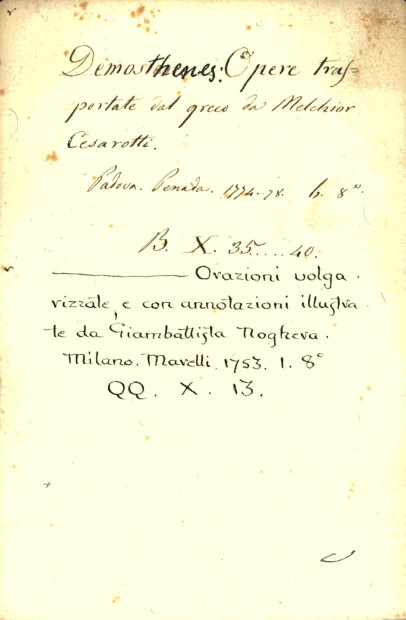 Demosthenes: Opere tras=
portate dal greco da Melchior
Cesarotti.
Padova. Penada. 1774.-78. 8°.
B. X. 35.....40.
Orazioni volga
rizzate, e con annotazioni illustra
te da Giambattista Nogheva.
Milano. Marelli. 1753. 1. 8°
QQ. X. 13.